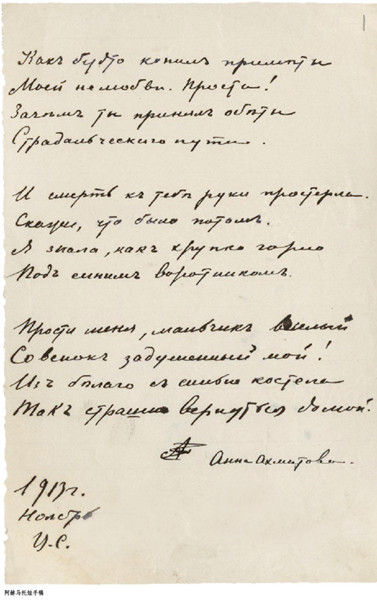 1
Какъ будто копилъ примѣты
Моей нелюбви. Прости!
Зачѣмъ ты принялъ обѣты
Страдальческаго пути.
И смерть къ тебѣ руки простерла.
Скажи, что было потомъ.
Я знала, какъ хрупко горло
Подъ синимъ воротникомъ.
Прости меня, мальчикъ веселый
Совенокъ задушенный мой!
Изъ бѣлаго съ синью костела
Такъ страшно вернуться домой.
АА Анна Ахматова.
1913г.
Ноябрь
Ц.С.
阿赫马托娃手稿